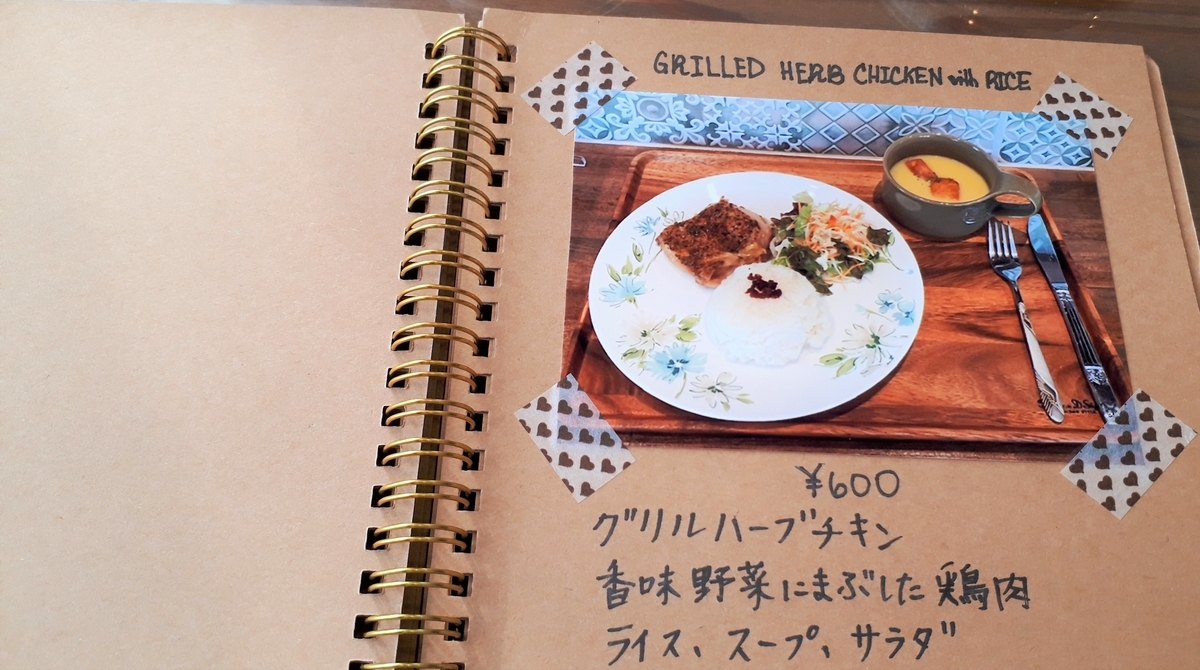 GRILLED HERB CHICKEN with RICE
¥600
グリルハーブチキン
香味野菜にまぶした鶏肉
ライス、スープ、サラダ